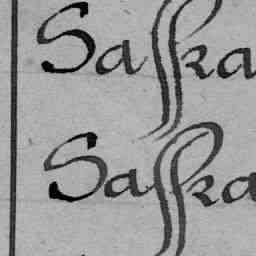 Saſſka
Saſſka